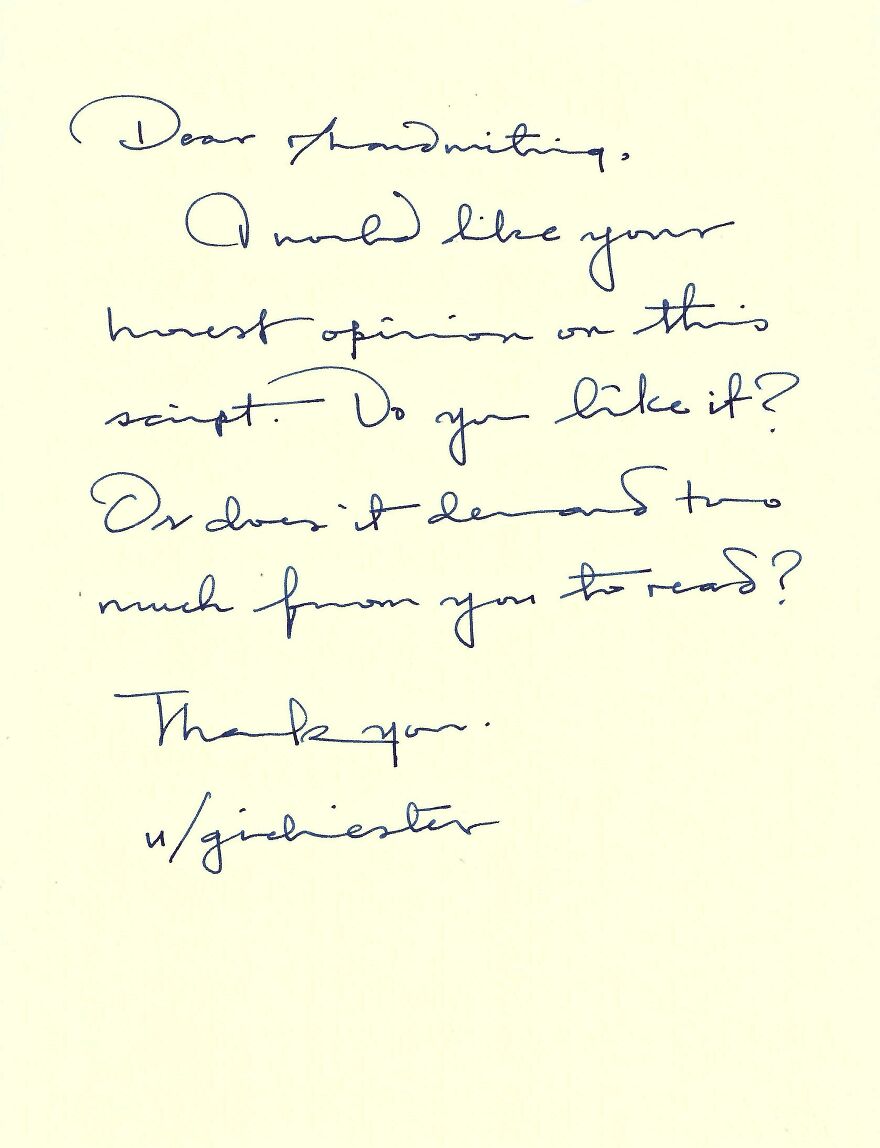 Dear r/handwriting,
I would like your
honest opinion on this
script. Do you like it?
Or does it demand two
much from you to read?
Thank you.